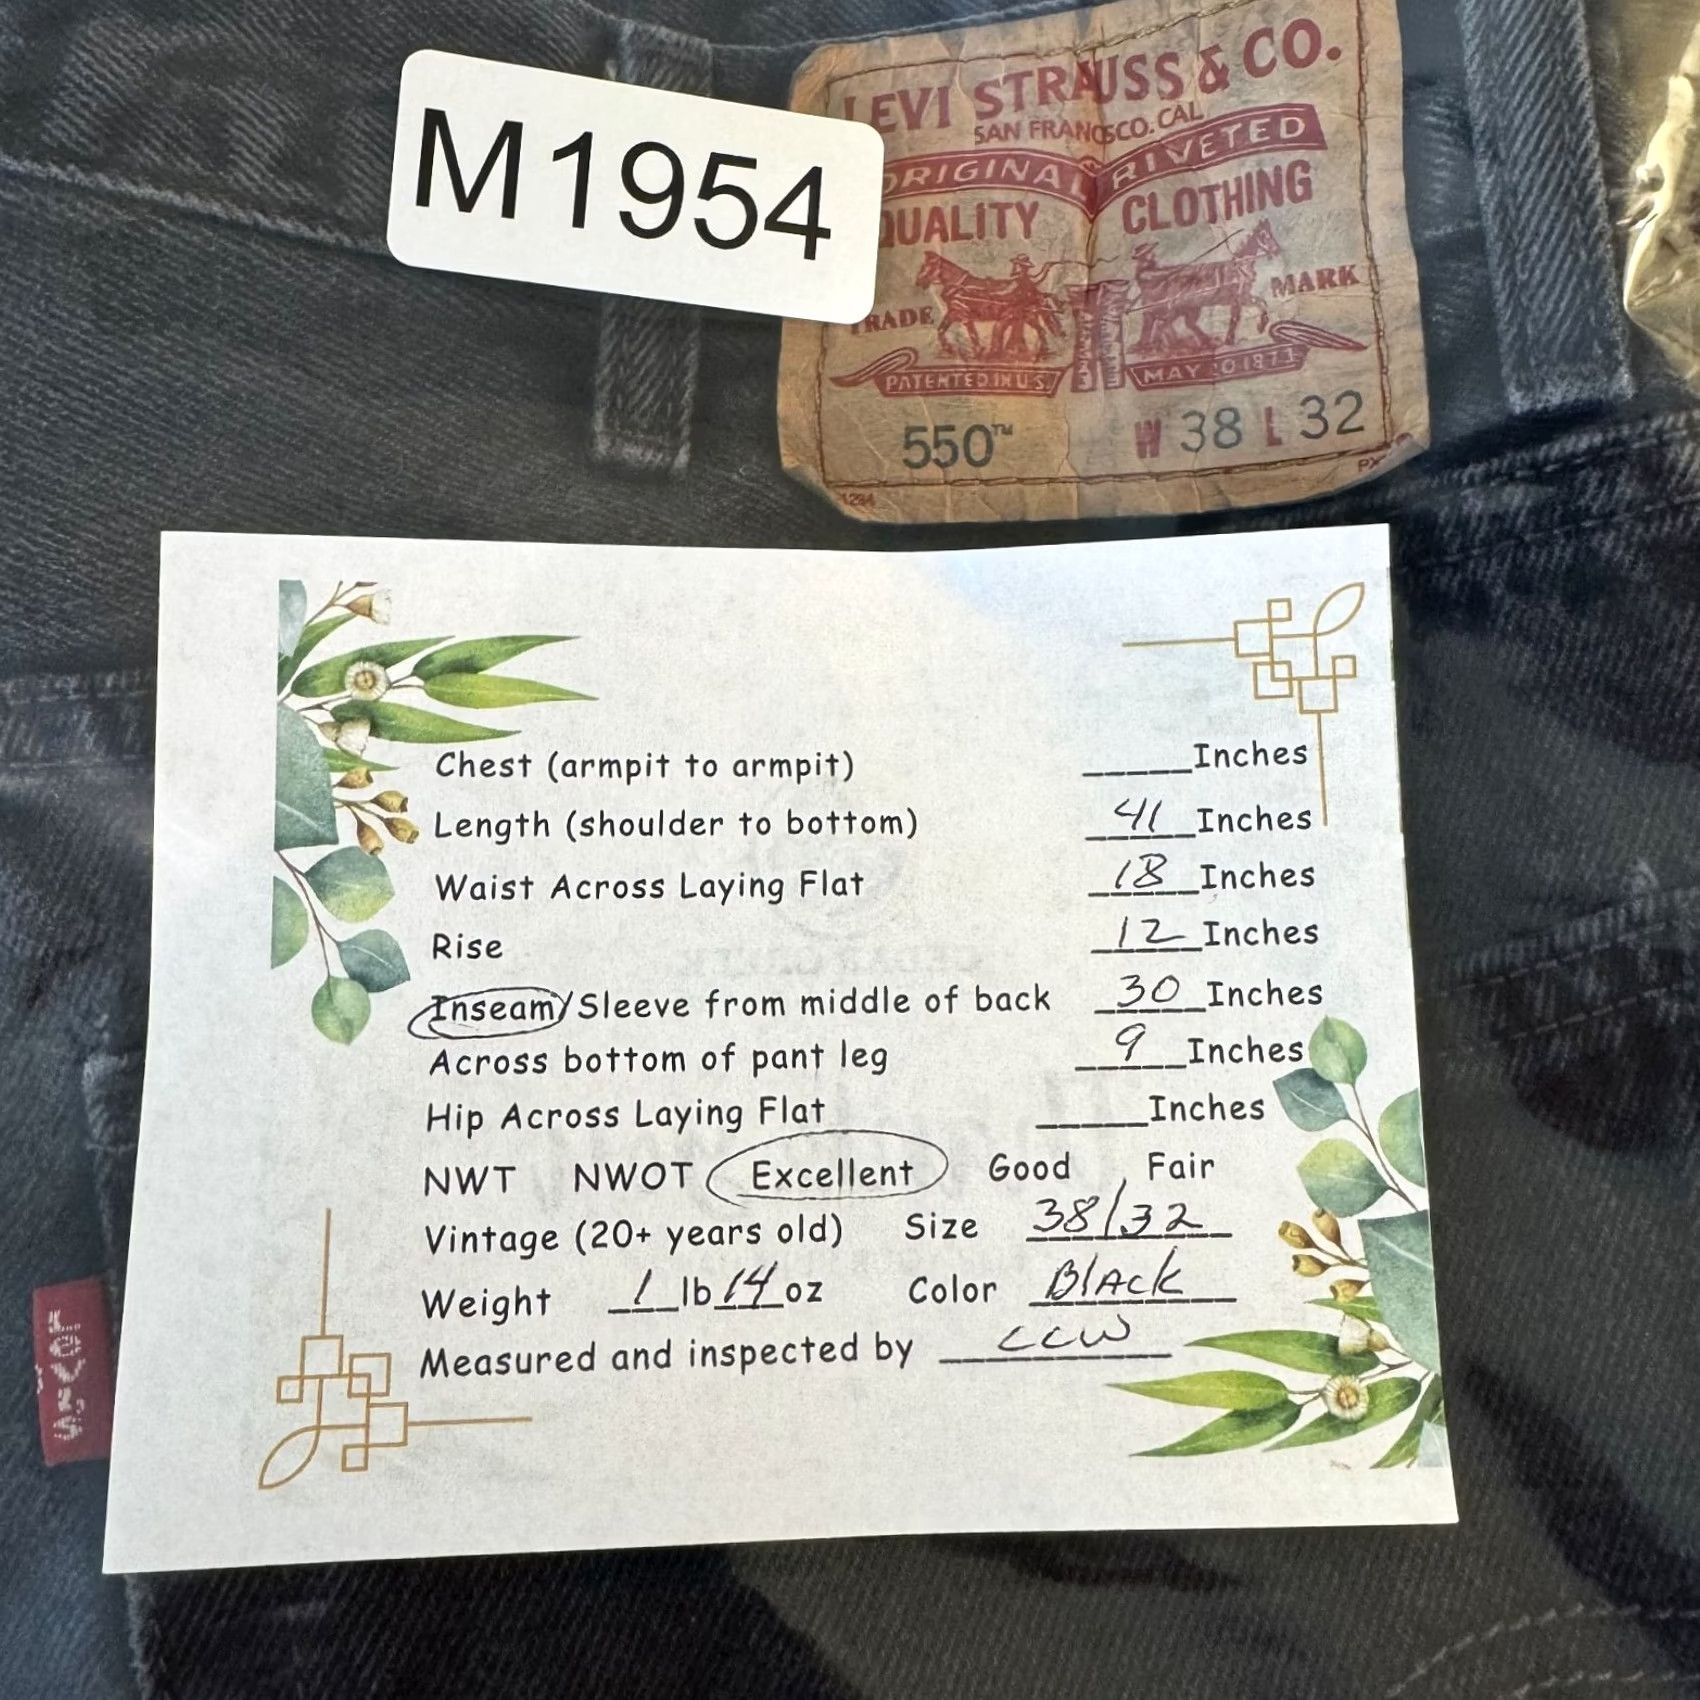 M1954
LEVI STRAUSS & CO.
SAN FRANCISCO, CAL
ORIGINAL RIVETED
QUALITY CLOTHING
TRADE MARK
PATENTED IN U.S. MAY 20 1873
550™ W 38 L 32
Chest (armpit to armpit) _____Inches
Length (shoulder to bottom) 41 Inches
Waist Across Laying Flat 18 Inches
Rise 12 Inches
Inseam/Sleeve from middle of back 30 Inches
Across bottom of pant leg 9 Inches
Hip Across Laying Flat _____Inches
NWT NWOT Excellent Good Fair
Vintage (20+ years old) Size 38/32
Weight 1 lb 14 oz Color Black
Measured and inspected by CCW